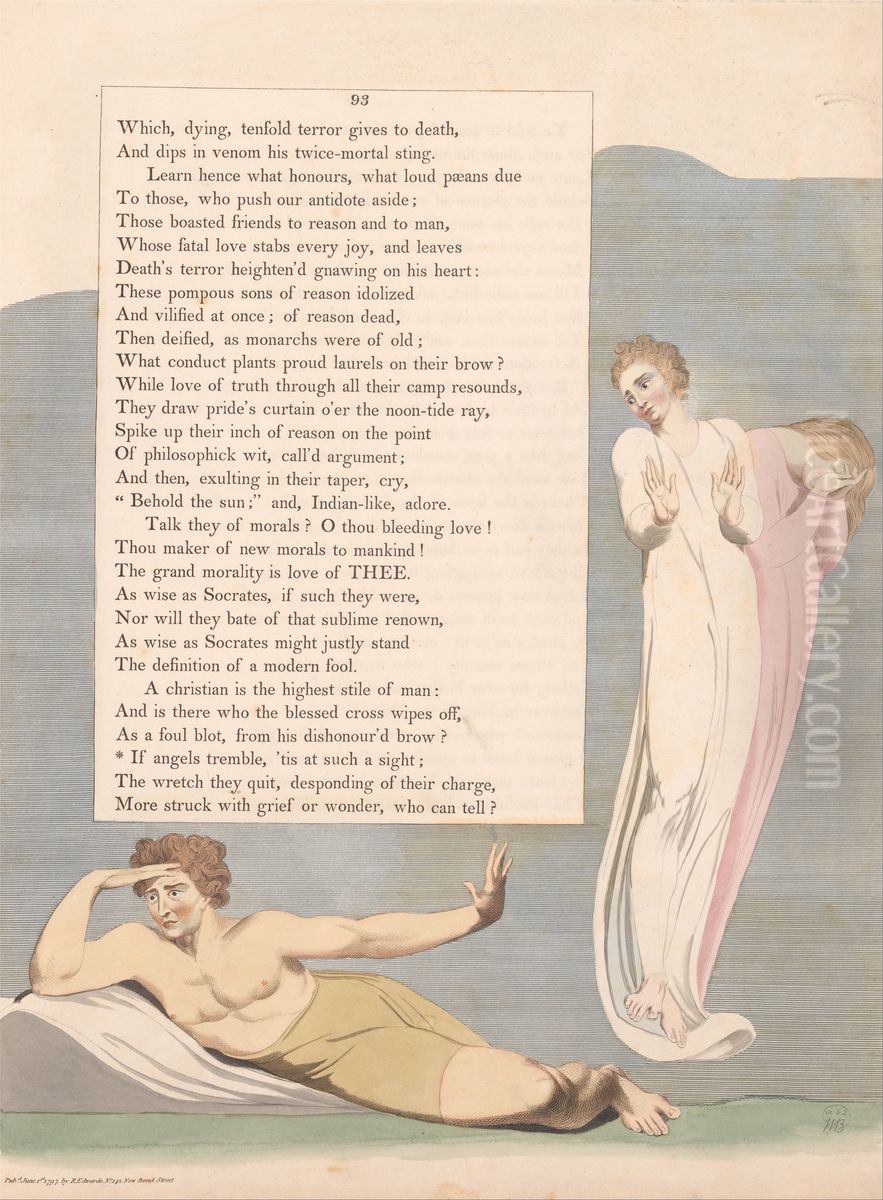 93
Which, dying, tenfold terror gives to death,
And dips in venom his twice-mortal sting.
Learn hence what honours, what loud pæans due
To those, who push our antidote aside;
Those boasted friends to reason and to man,
Whose fatal love stabs every joy, and leaves
Death's terror heighten'd gnawing on his heart:
These pompous sons of reason idolized
And vilified at once; of reason dead,
Then deified, as monarchs were of old;
What conduct plants proud laurels on their brow?
While love of truth through all their camp resounds,
They draw pride's curtain o'er the noon-tide ray,
Spike up their inch of reason on the point
Of philosophick wit, call'd argument;
And then, exulting in their taper, cry,
“ Behold the sun;” and, Indian-like, adore.
Talk they of morals? O thou bleeding love!
Thou maker of new morals to mankind!
The grand morality is love of THEE.
As wise as Socrates, if such they were,
Nor will they bate of that sublime renown,
As wise as Socrates might justly stand
The definition of a modern fool.
A christian is the highest stile of man:
And is there who the blessed cross wipes off,
As a foul blot, from his dishonour'd brow?
* If angels tremble, 'tis at such a sight;
The wretch they quit, desponding of their charge,
More struck with grief or wonder, who can tell?
WB
Pubd. June 1st. 1797, by R. Edwards, No. 142 New Bond Street